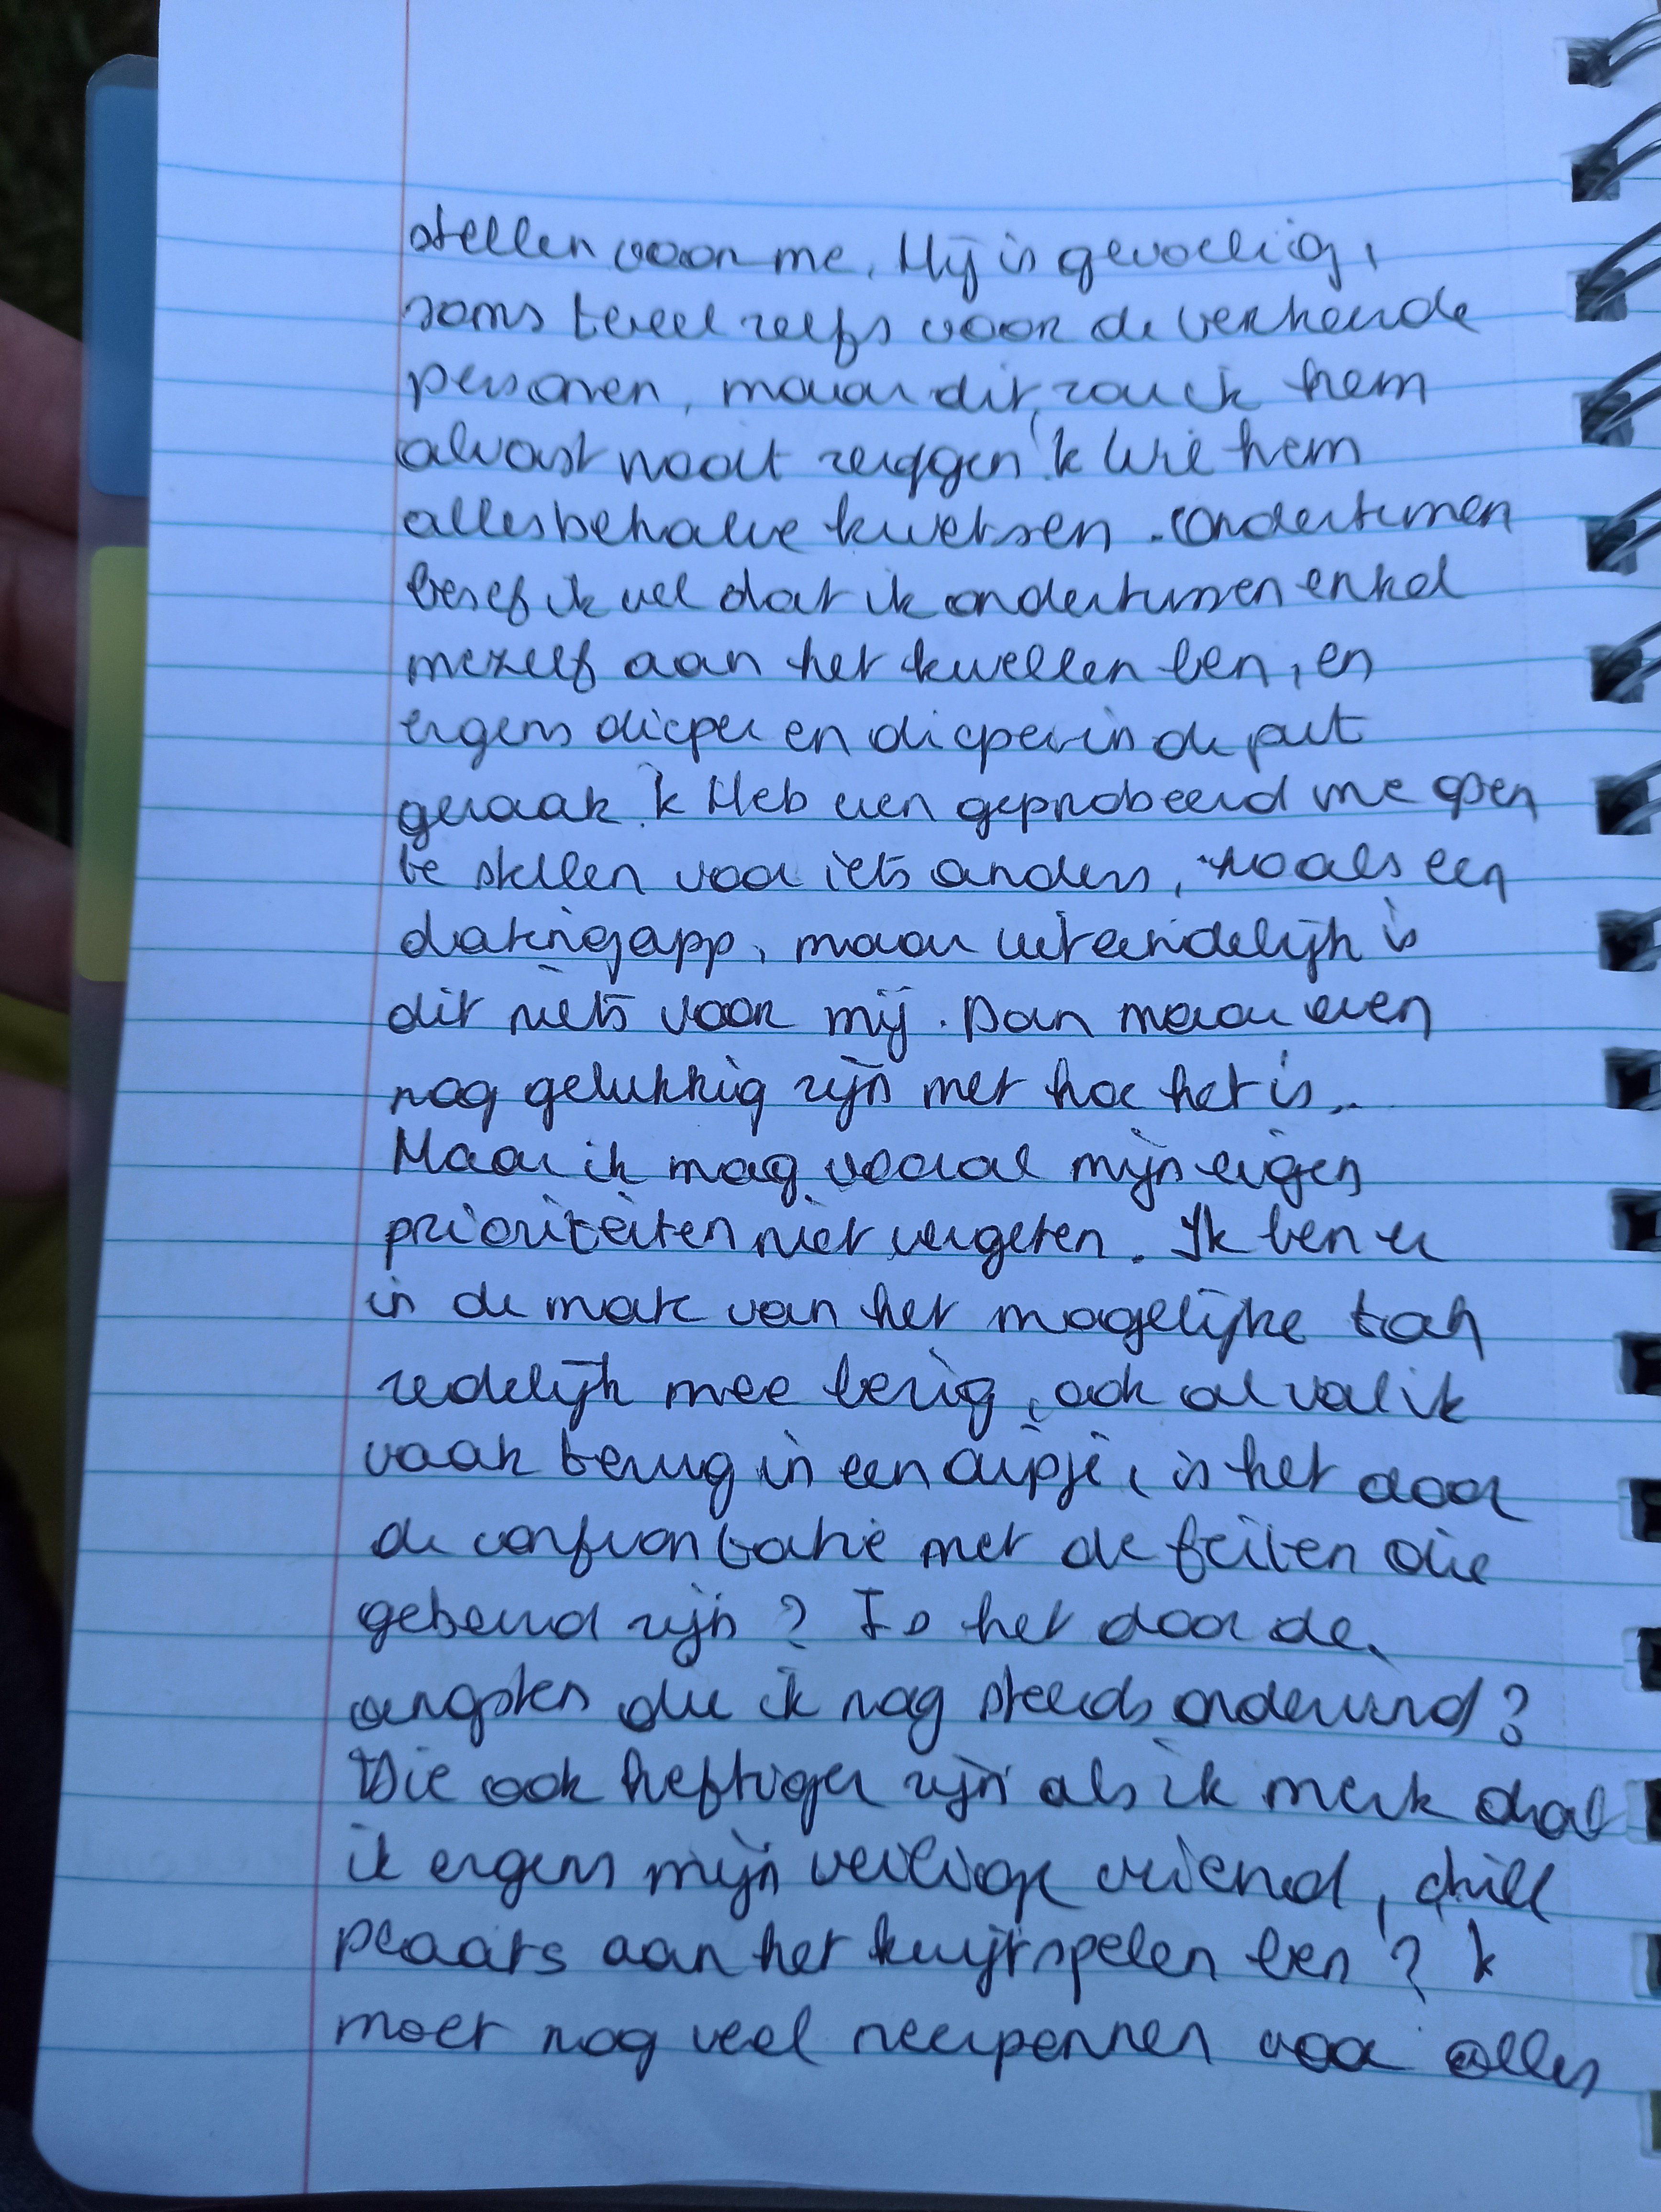 stellen voor me. Hij is gevoelig,
soms teveel zelfs voor de verkeerde
personen, maar dit zou ik hem
alvast nooit zeggen. 'k Wil hem
allesbehalve kwetsen. Ondertussen
besef ik wel dat ik ondertussen enkel
mezelf aan het kwellen ben, en
ergens dieper en dieper in de put
geraak. 'k Heb even geprobeerd me open
te stellen voor iets anders, zoals een
datingapp, maar uiteindelijk is
dit niets voor mij. Dan maar even
nog gelukkig zijn met hoe het is..
Maar ik mag vooral mijn eigen
prioriteiten niet vergeten. Ik ben er
in de mate van het mogelijke toch
redelijk mee bezig, ook al val ik
vaak terug in een dipje, is het door
de confrontatie met de feiten die
gebeurd zijn? Is het door de
angsten die ik nog steeds ondervind?
Die ook heftiger zijn als ik merk dat
ik ergens mijn veilige vriend, chill
plaats aan het kwijtspelen ben? 'k
moet nog veel neerpennen voor alles